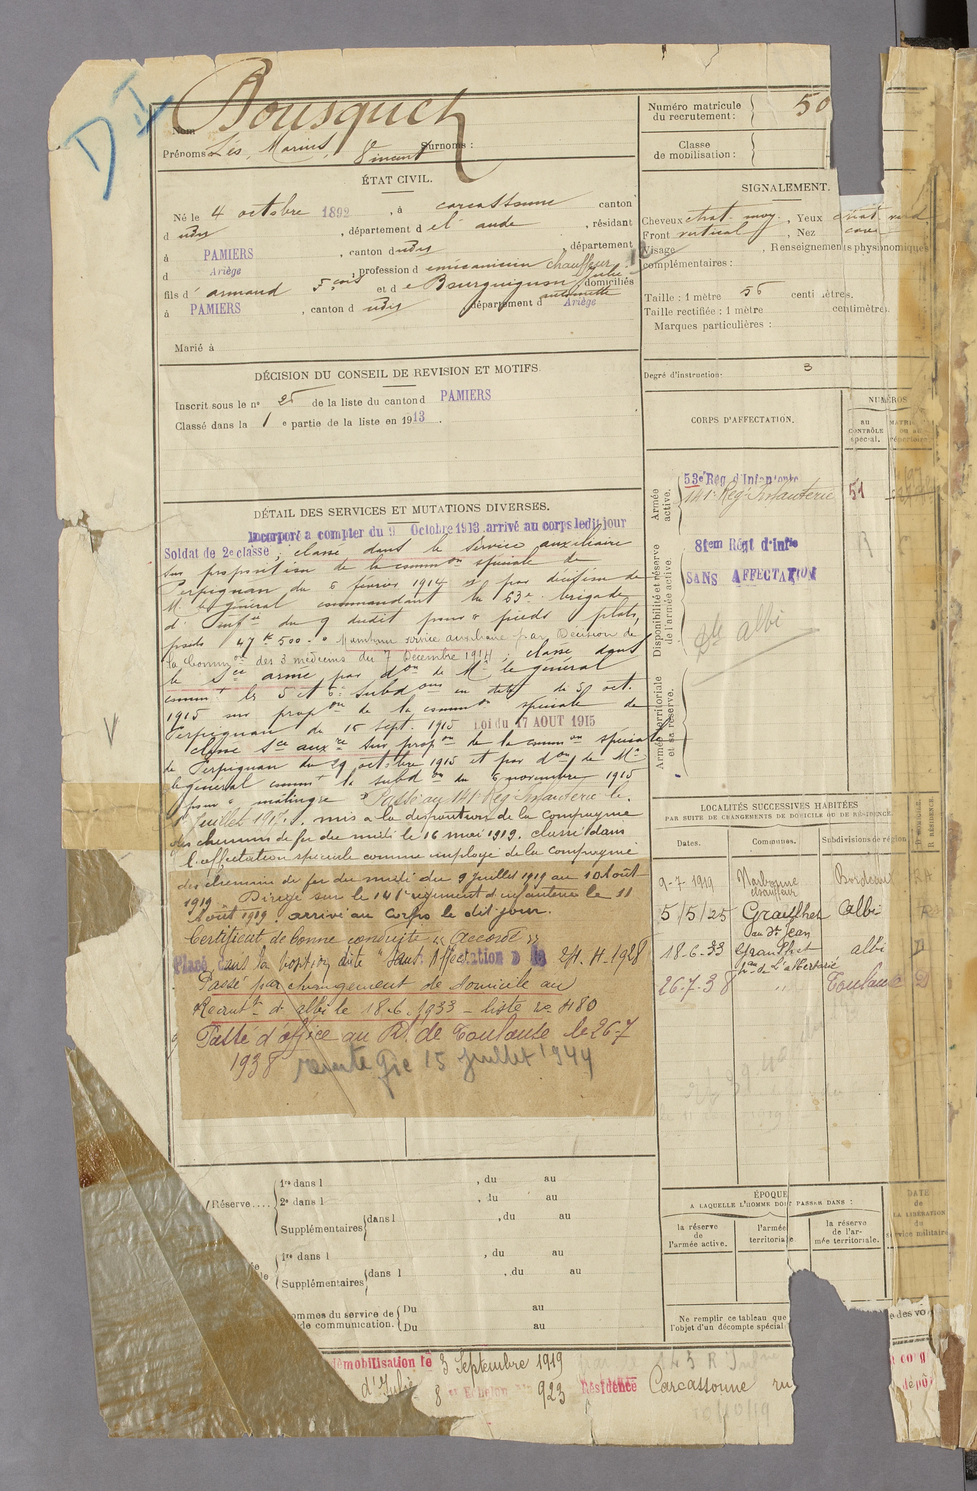 D I
Bousquet
Nom
Prénoms Léo, Marius, Vincent Surnoms :
Numéro matricule du recrutement : 50
Classe de mobilisation :
ÉTAT CIVIL.
Né le 4 octobre 1892, à carcassonne canton
d udy, département d el' aude, résidant
à PAMIERS, canton d udy, département
d Ariège, profession d emécanicien chauffeur
fils d' armand, Fcois et d e Bourguignon Julie antoinette domiciliés
à PAMIERS, canton d udy département d Ariège
Marié à
SIGNALEMENT.
Cheveux chat. moy., Yeux
Front vertical, Nez
Visage Renseignements physionomiques
complémentaires :
Taille : 1 mètre 56 centimètres.
Taille rectifiée : 1 mètre centimètres.
Marques particulières :
Degré d'instruction : 3
DÉCISION DU CONSEIL DE REVISION ET MOTIFS.
Inscrit sous le n° 25 de la liste du canton d PAMIERS
Classé dans la 1 e partie de la liste en 1913.
DÉTAIL DES SERVICES ET MUTATIONS DIVERSES.
Incorporé à compter du 9 Octobre 1913 arrivé au corps ledit jour
Soldat de 2e classe, classé dans le service auxiliaire
sur proposition de la common spéciale de
Perpignan du 6 février 1914 et par décision de
M. le général commandant la 63e brigade
d' Infie du 9 dudit pour " pieds plats,
poids 47 k 500. " Maintenu service auxiliaire par Décision de
la Common des 3 médecins du 7 Décembre 1914, classé dans
le Sce armé par don de Mr le général
commt les 5 et 6e Subdons en date de 30 oct.
1915 sur propon de la common spéciale de
Perpignan du 15 sept. 1915 Loi du 17 AOUT 1915
Classé Sce auxre sur propon de la common spéciale
de Perpignan du 29 octobre 1915 et par don de Mr
le général commt la subdon du 6 novembre 1915
pour " malingre " Passé au 141e Reg. Infanterie le
juillet mis à la disposition de la Compagnie
des chemins de fer du midi le 16 mai 1919. classé dans
l'affectation spéciale comme employé de la Compagnie
des chemin de fer du midi du 9 juillet 1919 au 10 Août
1919 Dirigé sur le 141e régiment d'infanterie le 11
Août 1919 arrivé au corps le dit jour.
Certificat de bonne conduite "Accordé"
Placé dans la position dite "Sans Affectation" D le 24. 4. 1928
Passé par changement de domicile au
Recrut. d'albi le 18.6.1933 - liste no 480
Passé d'office au R. de Toulouse le 26.7
1938 15 juillet 1944
CORPS D'AFFECTATION.
NUMÉROS
au CONTRÔLE spécial.
Armée active.
53e Rég. d'Infanterie
141e Reg. Infanterie
51
Disponibilité et réserve de l'armée active.
81em Régt d'Infie
SANS AFFECTATION
albi
Armée territoriale et sa réserve.
LOCALITÉS SUCCESSIVES HABITÉES
PAR SUITE DE CHANGEMENTS DE DOMICILE OU DE RÉSIDENCE.
Dates. Communes. Subdivisions de région
9-7-1919 Narbonne chauffeur Bordeaux
5/5/25 Graulhet St Jean Albi
18-6-33 Graulhet albi D
26-7-38 " Toulouse D
Réserve .... 1re dans l , du au
2e dans l , du au
Supplémentaires dans l , du au
1re dans l , du au
Supplémentaires dans l , du au
ommes du service de Du au
de communication. Du au
ÉPOQUE
A LAQUELLE L'HOMME DOIT PASSER DANS :
la réserve de l'armée active. l'armée territoriale la réserve de l'armée territoriale.
DATE de LA LIBÉRATION du service militaire
Ne remplir ce tableau que
l'objet d'un décompte spécial
démobilisation le 3 Septembre 1919
8 me Echelon No 923 Résidence Carcassonne ru